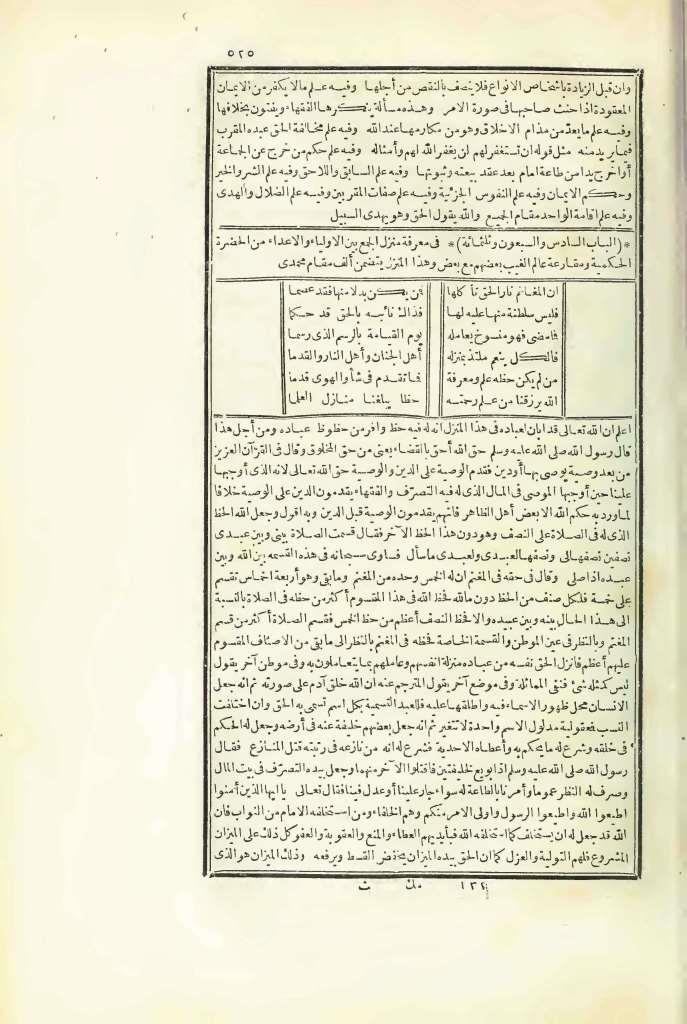 ٥٢٥
وان قبل الزيادة باشخاص الانواع فلا يتصف بالنقص من أجلها وفيه علم مالا يكفر من الايمان
المعقودة اذا حنث صاحبها فى صورة الامر وهذه مسألة ينكرها الفقهاء ويفتون بخلافها
وفيه علم ما يعد من مذام الاخلاق وهو من مكارمها عند الله وفيه علم مخالفة الحق عبده المقرب
فيما يريد منه مثل قوله ان تستغفر لهم لن يغفر الله لهم وأمثاله وفيه علم حكم من خرج عن الجماعة
أو اخرج يدا من طاعة امام بعد عقد بيعته وثبوتها وفيه علم السابق واللاحق وفيه علم الشر والخير
وحكم الايمان وفيه علم النفوس الجزئية وفيه علم صفات المقربين وفيه علم الضلال والهدى
وفيه علم اقامة الواحد مقام الجميع والله يقول الحق وهو يهدى السبيل
*(الباب السادس والسبعون وثلثمائة)* فى معرفة منزل الجمع بين الاولياء والاعداء من الحضرة
الحكمية ومقارعة عالم الغيب بعضهم مع بعض وهذا المنزل يتضمن ألف مقام محمدى
ان المغانم نار الحق تأكلها فمن يكن بدلا منها فقد عصما
فليس سلطنة منها عليه لها فذاك نائبه بالحق قد حكما
فامضى فهو منسوخ يعامله يوم القيامة بالرسم الذى رسما
فالكل ينعم ملتذ بمنزله أهل الجنان وأهل النار والقدما
من لم يكن حظه علم ومعرفة فما تقدم فى شأو الهوى قدما
الله يرزقنا من علم رحمته حظا يبلغنا منازل العلما
اعلم ان الله تعالى قد ابان لعباده فى هذا المنزل انه له فيه حظ وافر من حظوظ عباده ومن أجل هذا
قال رسول الله صلى الله عليه وسلم حق الله أحق بالقضاء يعنى من حق المخلوق وقال فى القرآن العزيز
من بعد وصية يوصى بها أو دين فقدم الوصية على الدين والوصية حق الله تعالى لانه الذى أوجبها
علينا حين أوجبها الموصى فى المال الذى له فيه التصرف والفقهاء يقدمون الدين على الوصية خلافا
لما ورد به حكم الله الا بعض أهل الظاهر فانهم يقدمون الوصية قبل الدين وبه اقول وجعل الله الحظ
الذى له فى الصلاة على النصف وهو دون هذا الحظ الآخر فقال قسمت الصلاة بينى وبين عبدى
نصفين نصفها لى ونصفها لعبدى ولعبدى ما سأل فساوى سبحانه فى هذه القسمه بين الله وبين
عبده اذا صلى وقال فى حقه فى المغنم ان له الخمس وحده من المغنم وما بقى وهو أربعة اخماس تقسم
على خمسة فلكل صنف من الحظ دون ما لله فحظ الله فى هذا المقسوم أكثر من حظه فى الصلاة بالنسبة
الى هذا الحال بينه وبين عبيده والا فحظ النصف أعظم من حظ الخمس فقسم الصلاة أكثر من قسم
المغنم وبالنظر فى عين الموطن والقسمة الخاصة فحظه فى المغنم بالنظر الى ما بقى من الاصناف المقسوم
عليهم أعظم فانزل الحق نفسه من عباده منزلة انفسهم وعاملهم بما يتعاملون به وفى موطن آخر يقول
ليس كمثله شئ فنفى المماثلة وفى موضع آخر يقول المترجم عنه ان الله خلق آدم على صورته ثم انه جعل
الانسان محل ظهور الاسماء فيه واطلقها عليه فللعبد التسمية بكل اسم تسمى به الحق وان اختلفت
النسب فمعقولية مدلول الاسم واحدة لا تتغير ثم انه جعل بعضهم خليفة عنه فى أرضه وجعل له الحكم
فى خلقه وشرع له ما يحكم به وأعطاه الاحدية فشرع له انه من نازعه فى رتبته قتل المنازع فقال
رسول الله صلى الله عليه وسلم اذا بويع لخليفتين فاقتلوا الآخر منهما وجعل بيده التصرف فى بيت المال
وصرف له النظر عموما وأمرنا بالطاعة له سواء جار علينا أو عدل فينا فقال تعالى يا ايها الذين آمنوا
اطيعوا الله واطيعوا الرسول واولى الامر منكم وهم الخلفاء ومن استخلفه الامام من النواب فان
الله قد جعل له ان يستخلف كما استخلفه الله فبأيديهم العطاء والمنع والعقوبة والعفو كل ذلك على الميزان
المشروع فلهم التولية والعزل كما ان الحق بيده الميزان يخفض القسط ويرفعه وذلك الميزان هو الذى
١٣٢ مك ث